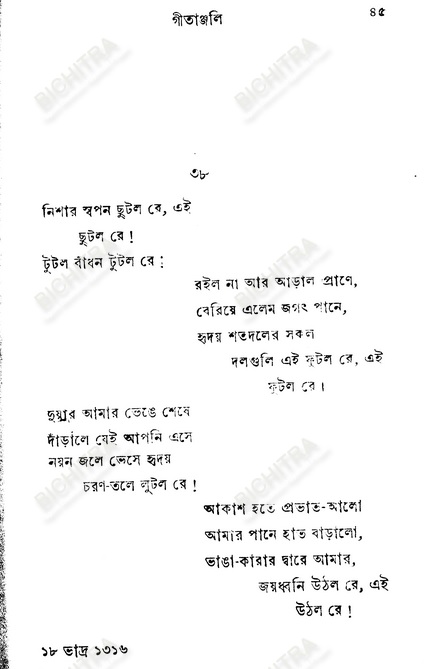 গীতাঞ্জলি ৪৫
৩৮
নিশার স্বপন ছুটল রে, এই
ছুটল রে !
টুটল বাঁধন টুটল রে :
রইল না আর আড়াল প্রাণে,
বেরিয়ে এলেম জগৎ পানে,
হৃদয় শতদলের সকল
দলগুলি এই ফুটল রে, এই
ফুটল রে।
দুয়ার আমার ভেঙে শেষে
দাঁড়ালে যেই আপনি এসে
নয়ন জলে ভেসে হৃদয়
চরণ-তলে লুটল রে !
আকাশ হতে প্রভাত-আলো
আমার পানে হাত বাড়ালো,
ভাঙা-কারার দ্বারে আমার,
জয়ধ্বনি উঠল রে, এই
উঠল রে !
১৮ ভাদ্র ১৩১৬
BICHITRA
BICHITRA
BICHITRA
BICHITRA
BICHITRA
BICHITRA
BICHITRA
BICHITRA